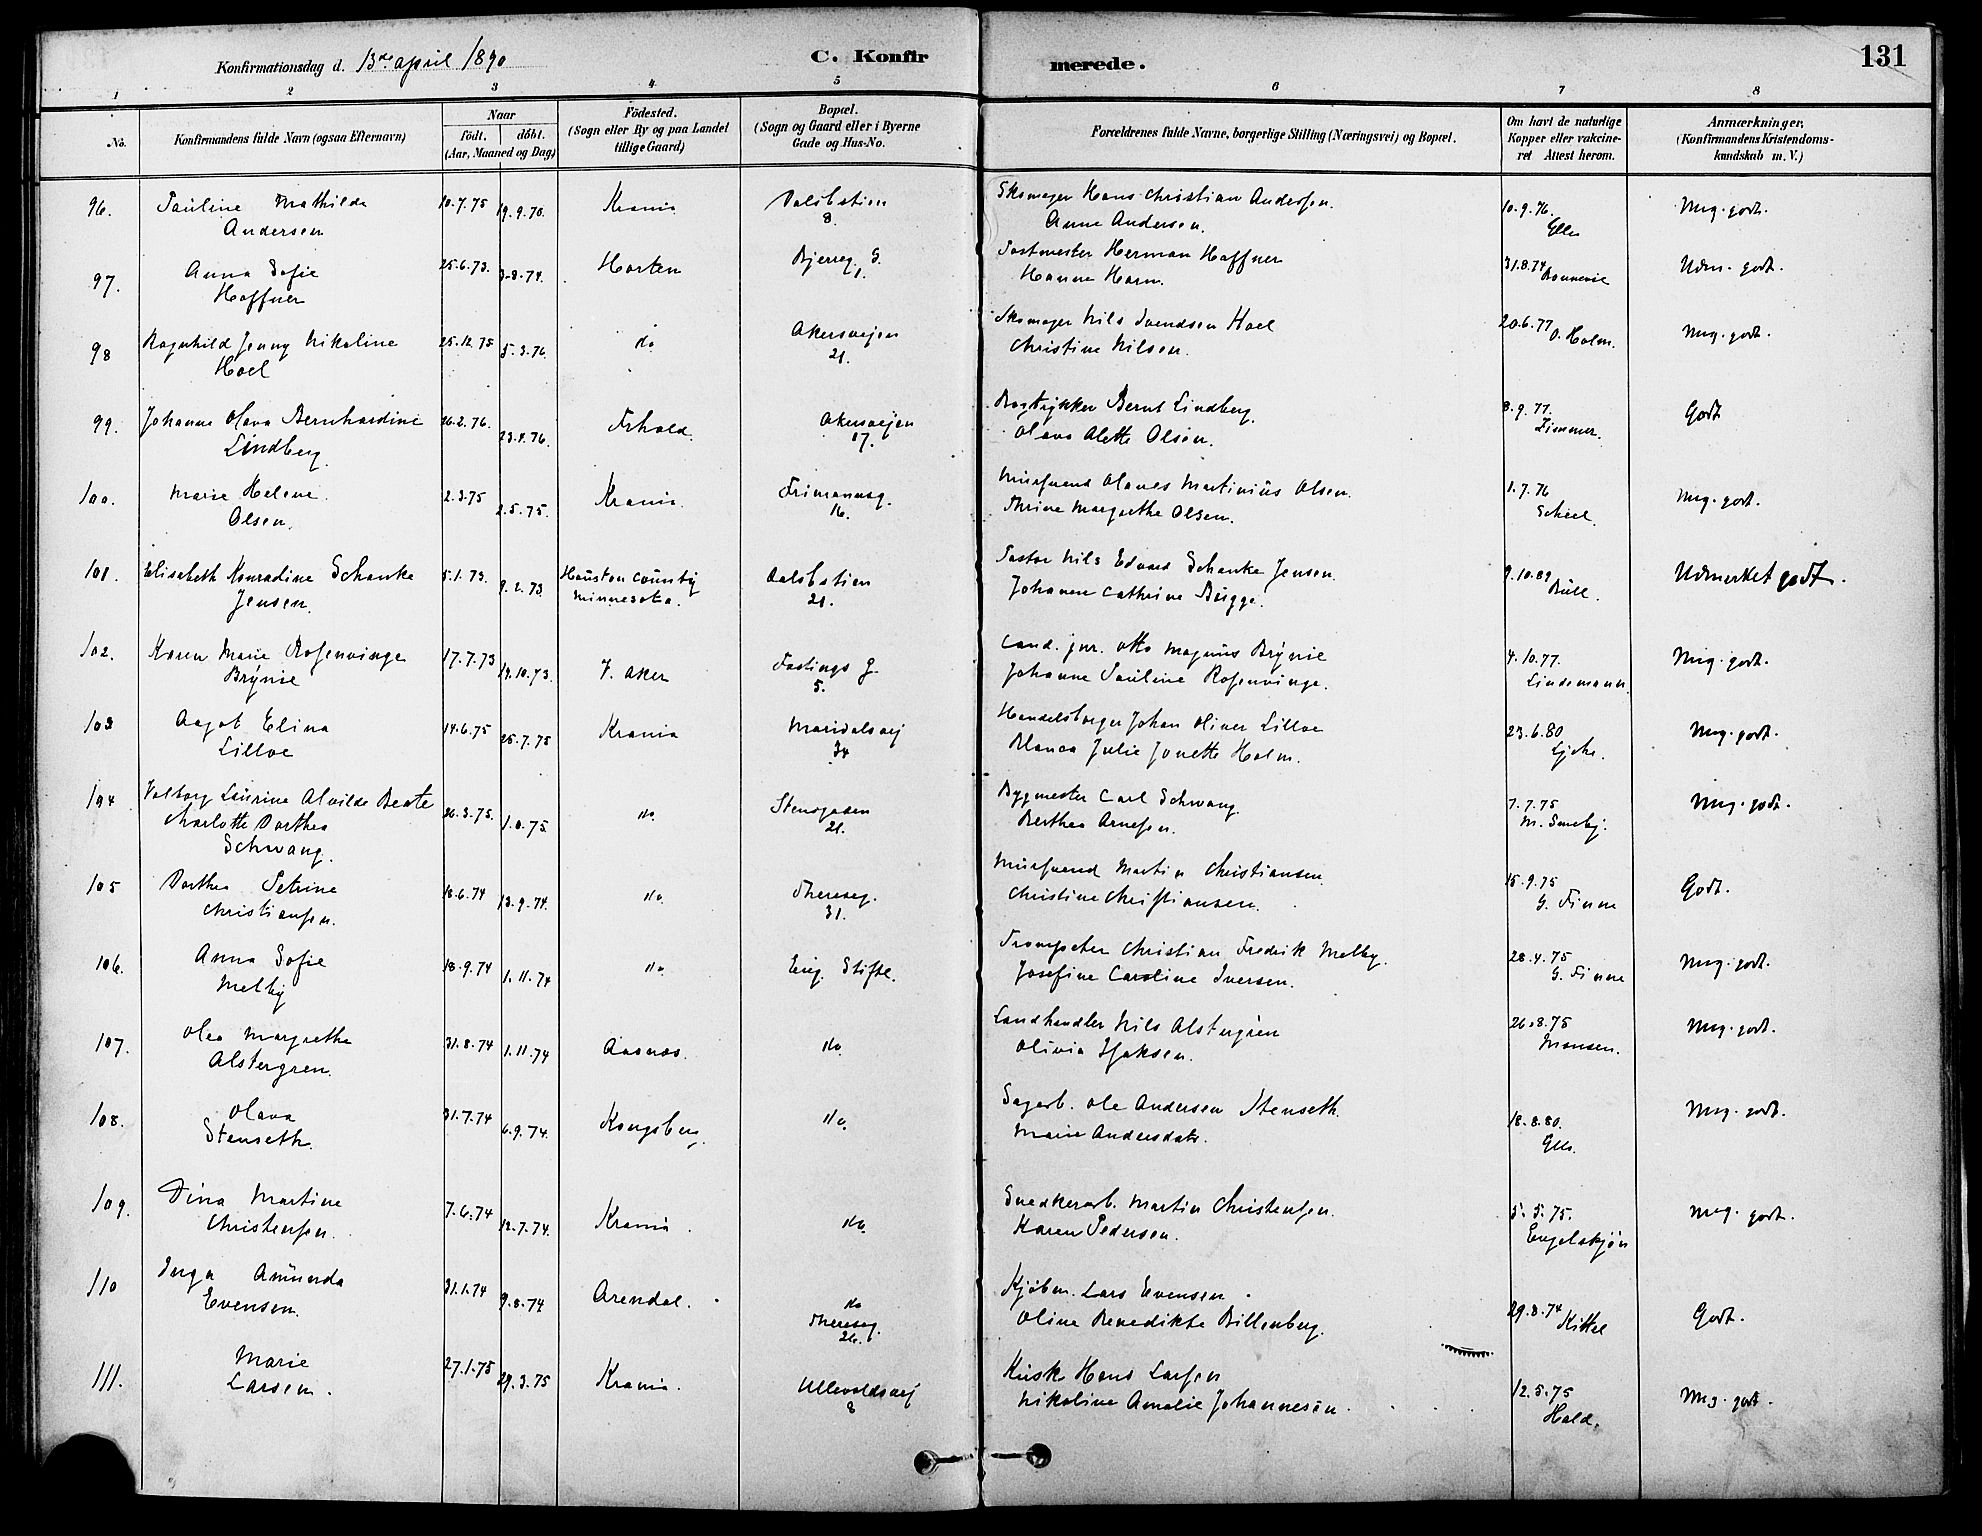 Konfirmationsdag d. 13de april 1890
C. Konfirmerede.
131
1 2 3 4 5 6 7 8
No.
Konfirmandens fulde Navn (ogsaa Efternavn)
Naar
födt. döbt.
(Aar, Maaned og Dag)
Födested.
(Sogn eller By og paa Landet
tillige Gaard)
Bopæl.
(Sogn og Gaard eller i Byerne
Gade og Hus-No.
Forældrenes fulde Navne, borgerlige Stilling (Næringsvei) og Bopæl.
Om havt de naturlige
Kopper eller vakcine-
ret Attest herom.
Anmærkninger,
(Konfirmandens Kristendoms-
kundskab m. V.)
96. Pauline Mathilde 10.7.75 19.9.75. Krania Dalsbstien Skomager Hans Christian Andersen. 10.9.76. Meg. godt.
Andersen 8. Anne Andersen.
97. Anna Sofie 25.6.73. Horten Bjerreg. G. Postmester Herman Haffner 31.8.74 Udm. godt.
Haffner 1. Hanne Horn.
98 Ragnhild Jenny Nikoline 25.12.75 5.3.76. do Akersvejen Skomager Nils Svendsen Hoel 20.6.77 O. Holm. Meg. godt.
Hoel 21. Christine Nilsen.
99. Johanne Olava Bernhardine 26.2.76. 23.4.76. Frhald. Akersvejen Bogtrykker Bernt Lindberg. 8.9.77. Godt
Lindberg. 17. Olava Alette Olsen. Zimmer.
100. Marie Helene 2.3.75 2.5.75. Krania. Frimannsg. Murersvend Olaves Martinius Olsen. 1.7.76 Meg. godt.
Olsen. 16. Thrine Margrethe Olsen. Scheel.
101. Elisabeth Konradine Schanke 5.1.73. 9.2.73. Houston County Dalsbstien Pastor Nils Edvard Schanke Jensen. 9.10.89 Udmerket godt.
Jensen. Minnesota. 21. Johanne Cathrine Bugge. Bull.
102. Karen Marie Rosenvinge 17.7.73 19.10.73. V. Aker Fastings G. Cand. jur. Otto Magnus Brynie 4.10.77. Meg. godt.
Brynie 5. Johanne Pauline Rosenvinge. Lindemann.
103 Aagot Elina 14.6.75 25.7.75 Krania Maridalsvej Handelsborger Johan Oliver Lilloe 23.6.80 Meg. godt.
Lilloe 34 Blanca Julie Jonette Holm.
104 Valborg Laurine Alvilde Beate 26.3.75. do. Stensgaden Bygmester Carl Schwang. 7.7.75 Meg. godt.
Charlotte Dorthea 21. Berthea Arnesen. M. Smeby.
Schwang.
105 Dorthea Petrine 18.6.74 13.9.74. do. Thereseg. Murersvend Martin Christiansen. 15.9.75 Godt.
Christiansen. 31. Christine Christiansen. G. Finne
106. Anna Sofie 18.9.74 1.11.74 do. Eug. Stifte. Trompeter Christian Fredrik Melby. 28.4.75 Meg. godt.
Melby Josefine Caroline Iversen. G. Finne
107. Olea Margrethe 31.8.74 1.11.74 Aasnæs. do. Landhandler Nils Alstergren 26.8.75 Meg. godt.
Alstergren. Olivia Isaksen. Monsen.
108. Olava 31.7.74 6.9.74. Kongsberg. do. Sagarb. Ole Andersen Stenseth. 18.8.80. Meg. godt.
Stenseth. Marie Andersdatr.
109. Dina Martine 7.6.74 12.7.74. Krania. do. Snedkerarb. Martin Christensen. 5.5.75. Meg. godt.
Christensen. Karen Pedersen. Engelskjøn
110 Inga Amunda 31.1.74 9.8.74 Arendal. do Kjøbm. Lars Evensen 29.8.74 Kittel Godt.
Evensen. Thereseg. Oline Benedikte Billenberg.
26.
111. Marie 27.1.75 29.3.75 Krania. Ullevoldsvej Kusk Hans Larsen 12.5.75 Meg. godt.
Larsen. 8 Nikoline Amalie Johannesen. Hald.